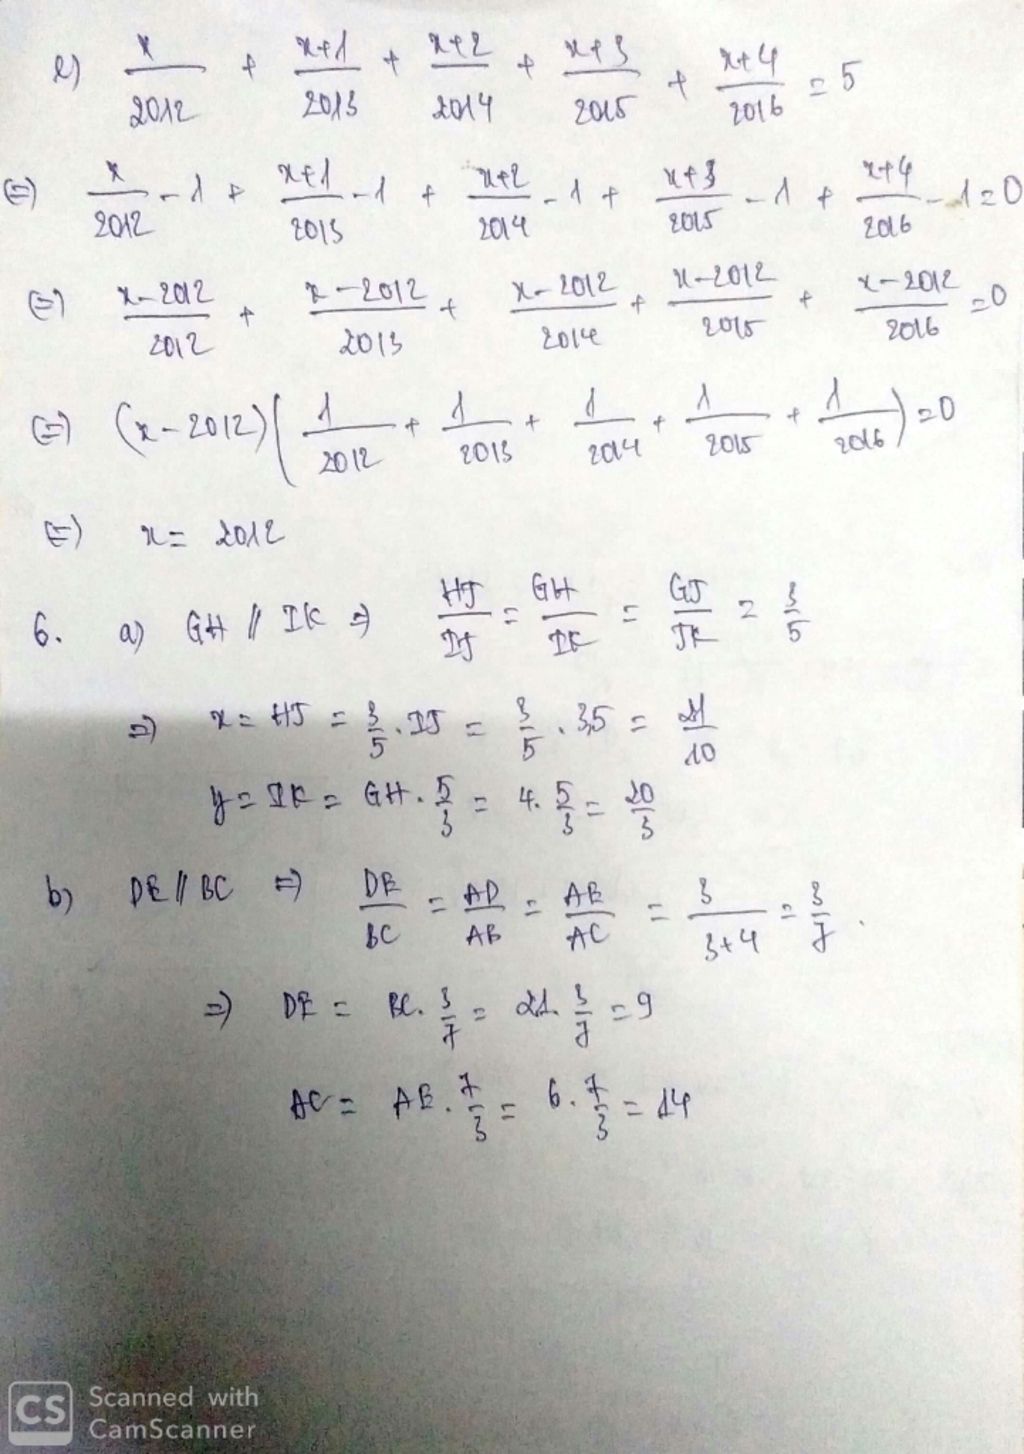 e) x/2012 + x+1/2013 + x+2/2014 + x+3/2015 + x+4/2016 = 5
(=) x/2012 - 1 + x+1/2013 - 1 + x+2/2014 - 1 + x+3/2015 - 1 + x+4/2016 - 1 = 0
(=) x-2012/2012 + x-2012/2013 + x-2012/2014 + x-2012/2015 + x-2012/2016 = 0
(=) (x-2012)(1/2012 + 1/2013 + 1/2014 + 1/2015 + 1/2016) = 0
(=) x = 2012
6. a) GH // IK => HJ/IJ = GH/IK = GJ/JK = 3/5
=> x = HJ = 3/5 . IJ = 3/5 . 3,5 = 21/10
y = IK = GH . 5/3 = 4. 5/3 = 20/3
b) DE // BC => DE/BC = AD/AB = AE/AC = 3/3+4 = 3/7.
=> DE = BC. 3/7 = 21. 3/7 = 9
AC = AE. 7/3 = 6. 7/3 = 14
CS Scanned with
CamScanner